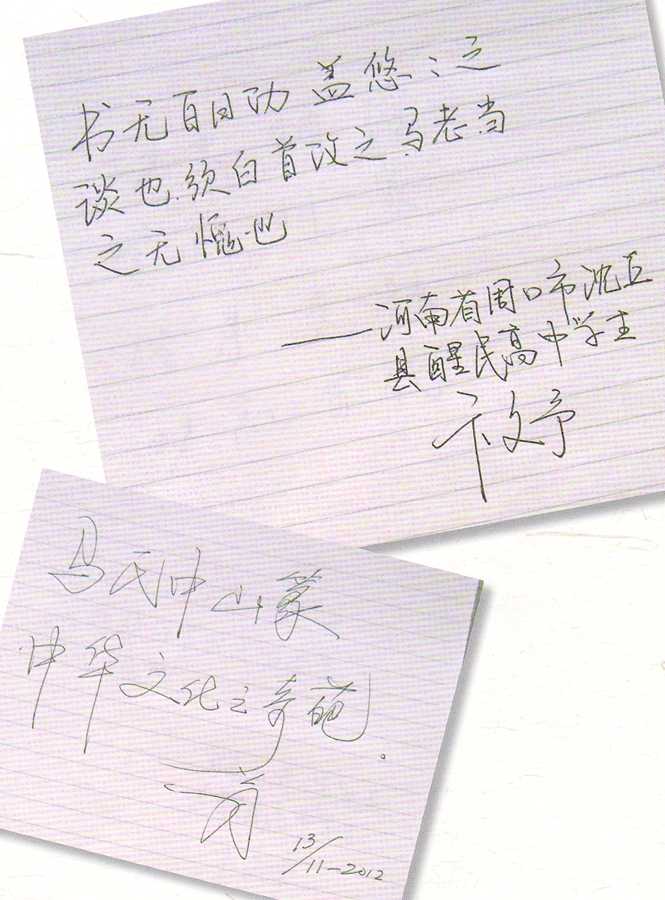 书无百日功 盖悠々之
谈也.须白首攻之 马老当
之无愧也
——河南省周口市沈丘
县醒民高中学生
卞文予
马氏中山篆
中华文化之奇葩.
13/11-2012